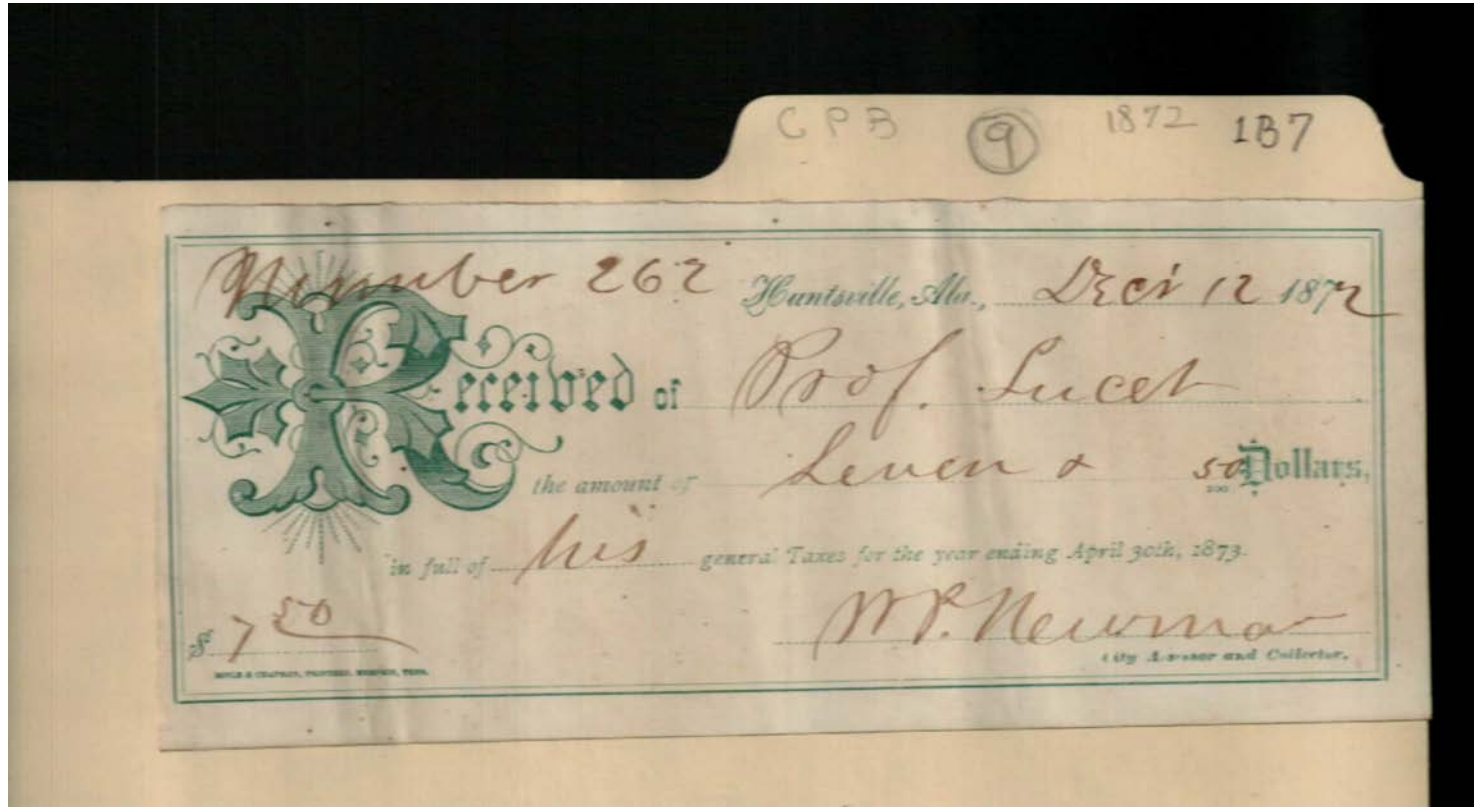 CPB 9 1872 1B7
Number 262 Huntsville, Ala., Decr 12 1872
Received of Prof. Lucet
the amount of Seven & 50/100 Dollars,
in full of his general Taxes for the year ending April 30th, 1873.
$ 7 50 W.P. Newman
City Assessor and Collector.
BOYLE & CHAPMAN, PRINTERS, MEMPHIS, TENN.